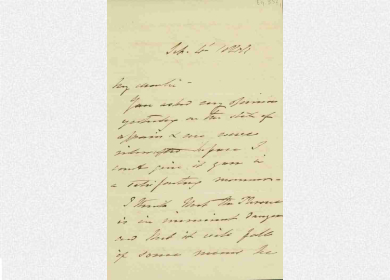 My dear
You asked my opinion
yesterday on the state of
affairs & we were
interrupted before I
could give it you in
a satisfactory manner
I think that the Throne
is in imminent danger
and that it will fall
if some means be